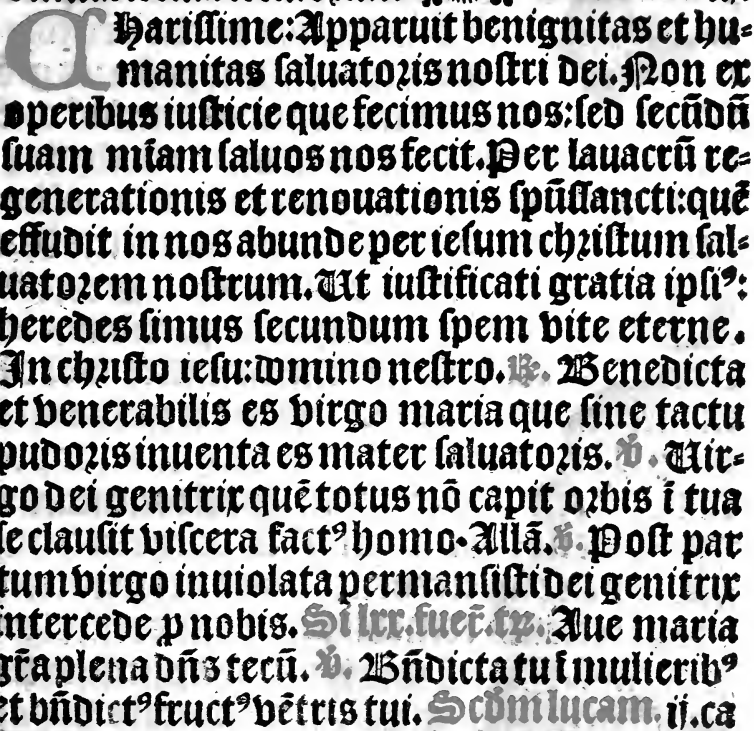 Chariſſime: Apparuit benignitas et hu⸗
manitas ſaluatoꝛis noſtri dei. Non ex
operibus iuſticie que fecimus nos: ſed ſecūdū
ſuam miam̄ ſaluos nos fecit. Per lauacrū re⸗
generationis et renouationis ſpūſſancti: quē
effudit in nos abunde per ieſum chꝛiſtum ſal⸗
uatoꝛem noſtrum. Ut iuſtificati gratia ipſiꝰ:
heredes ſimus ſecundum ſpem vite eterne.
In chꝛiſto ieſu: domino neſtro. ℟. Benedicta
et venerabilis es virgo maria que ſine tactu
pudoꝛis inuenta es mater ſaluatoꝛis. ℣. Uir⸗
go dei genitrix quē totus nō capit oꝛbis ī tua
ſe clauſit viſcera factꝰ homo. Allā. ℣. Poſt par
tum virgo inuiolata permanſiſti dei genitrix
intercede ꝓ nobis. Si lxx. fuer̄. tꝛ. Aue maria
gr̄a plena dn̄s tecū. ℣. Bn̄dicta tu ī mulieribꝰ
et bn̄dictꝰ fructꝰ vētris tui. Scd̄m lucam. ij. ca